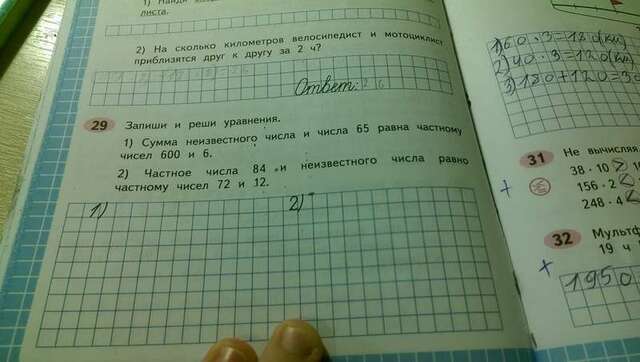 листа.
2) На сколько километров велосипедист и мотоциклист
приблизятся друг к другу за 2 ч?
Ответ:
29 Запиши и реши уравнения.
1) Сумма неизвестного числа и числа 65 равна частному
чисел 600 и 6.
2) Частное числа 84 и неизвестного числа равно
частному чисел 72 и 12.
1) 2)
1) 60 · 3 = 180 (км)
2) 40 · 3 = 120 (км)
3) 180 + 120 = 3
31 Не вычисляя
38 · 10 >
156 · 2 <
248 · 4 <
32 Мультф
19 ч
1950